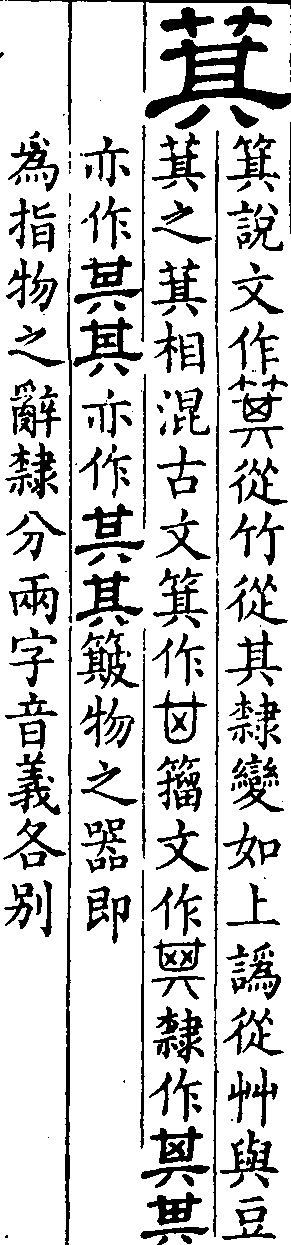 萁
箕說文作從竹從其隸變如上譌從艸與豆
萁之萁相混古文箕作籀文作隸作
亦作其亦作其簸物之器即
爲指物之辭隸分兩字音義各別